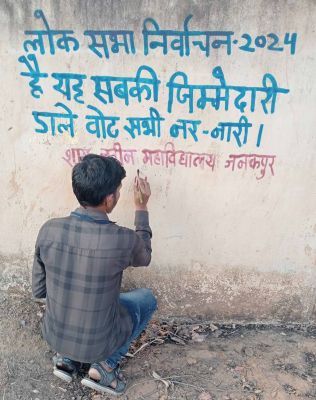 लोक सभा निर्वाचन-2024
है यह सबकी जिम्मेदारी
डाले वोट सभी नर-नारी।
महाविद्यालय जनकपुर